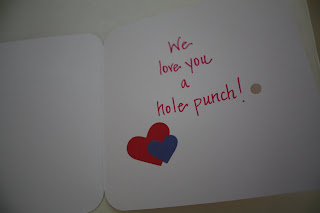 We
love you
a
hole punch!